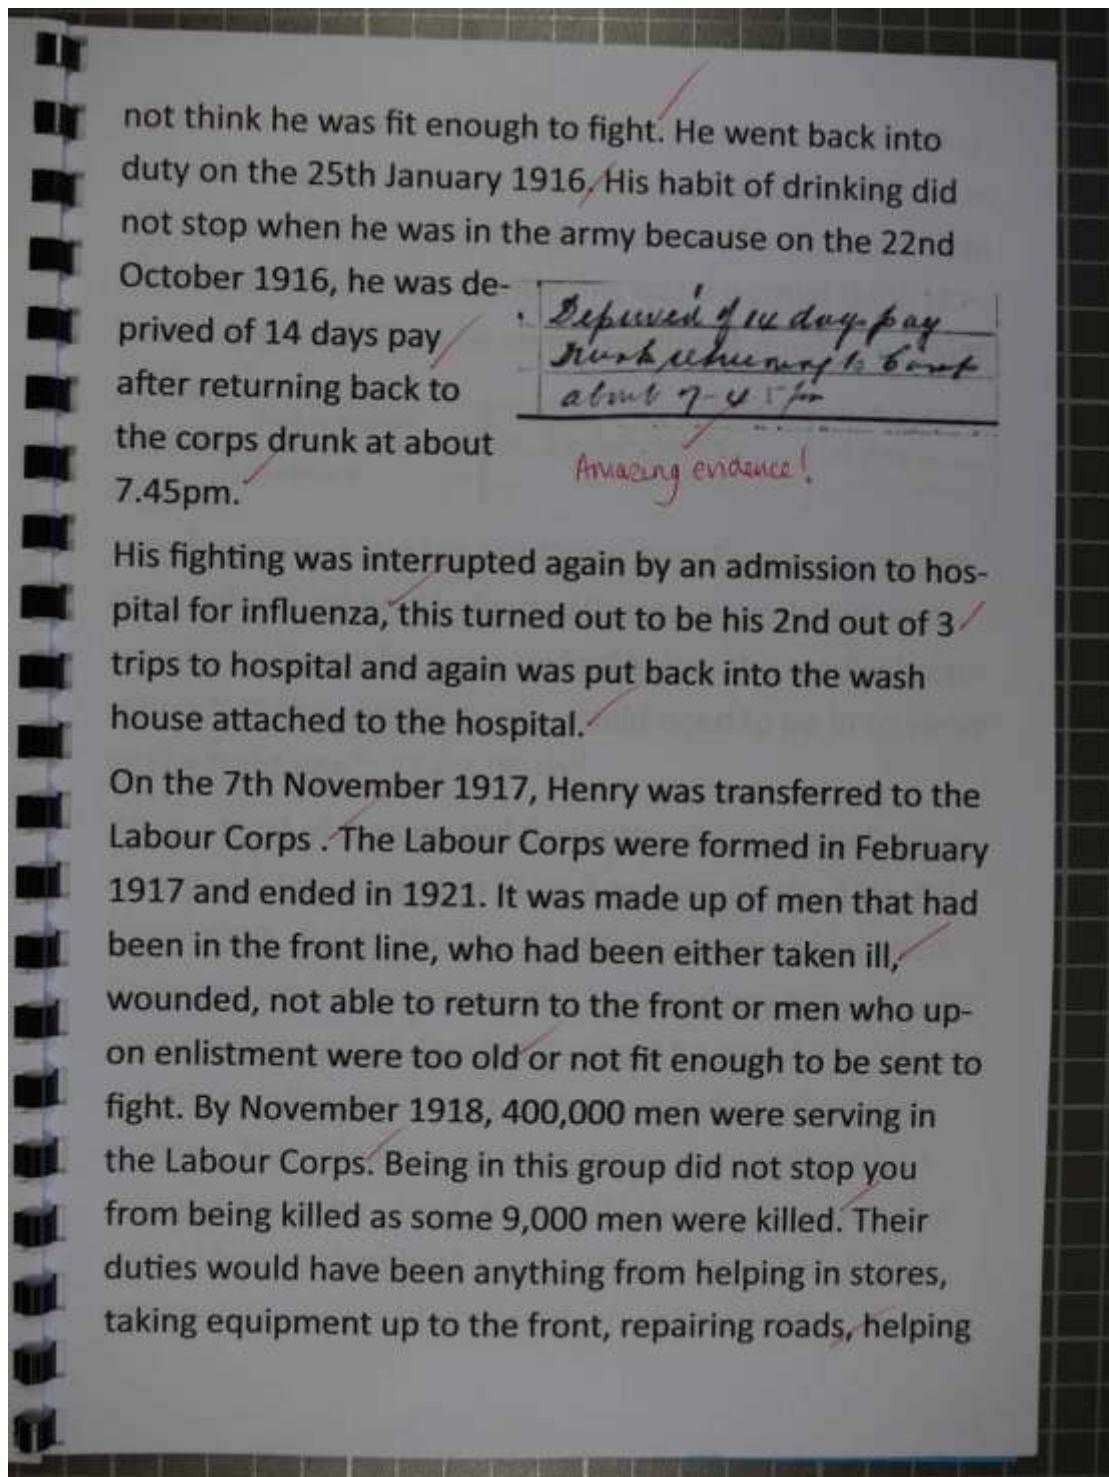 not think he was fit enough to fight. He went back into
duty on the 25th January 1916. His habit of drinking did
not stop when he was in the army because on the 22nd
October 1916, he was de-
prived of 14 days pay
after returning back to
the corps drunk at about
7.45pm.
Deprived of 14 days pay
Drunk returning to Camp
about 7-45 pm
Amazing evidence!
His fighting was interrupted again by an admission to hos-
pital for influenza, this turned out to be his 2nd out of 3
trips to hospital and again was put back into the wash
house attached to the hospital.
On the 7th November 1917, Henry was transferred to the
Labour Corps . The Labour Corps were formed in February
1917 and ended in 1921. It was made up of men that had
been in the front line, who had been either taken ill,
wounded, not able to return to the front or men who up-
on enlistment were too old or not fit enough to be sent to
fight. By November 1918, 400,000 men were serving in
the Labour Corps. Being in this group did not stop you
from being killed as some 9,000 men were killed. Their
duties would have been anything from helping in stores,
taking equipment up to the front, repairing roads, helping